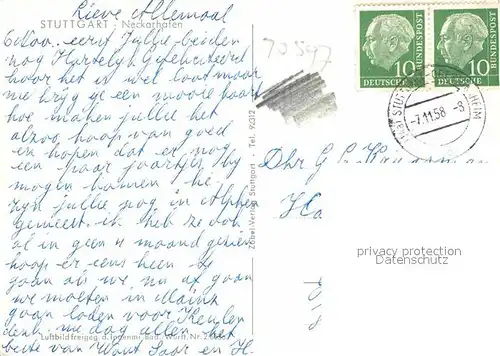 Lieve Allemaal
STUTTGART - Neckarhafen
6 Nov. eerst Jullie beiden
nog Hartelyk Gefeliciteerd
hoor het is wel laat maar
we kryg je een mooie kaart
hoe maken jullie het
alzoo hoop van goed
en hopen dat er nog
een paar jaartjes by
mogen komen
zyn jullie nog in Alphen
geweest. ik heb ze ook
al in geen 4 maand gezien
hoop er eens heen te
gaan als we nu af gaan
we moeten in Mainz
gaan laden voor Keulen
denk me dag allen het
beste van Wout Saar en H.
Luftbildfreigeg. d. Innenmi. Bad.-Württ. Nr.
Zobel-Verlag Stuttgart · Tel. 92312
70597
10 DEUTSCHE BUNDESPOST
10 DEUTSCHE BUNDESPOST
STUTTGART
-7.11.58 -8
Dhr G
privacy protection
Datenschutz